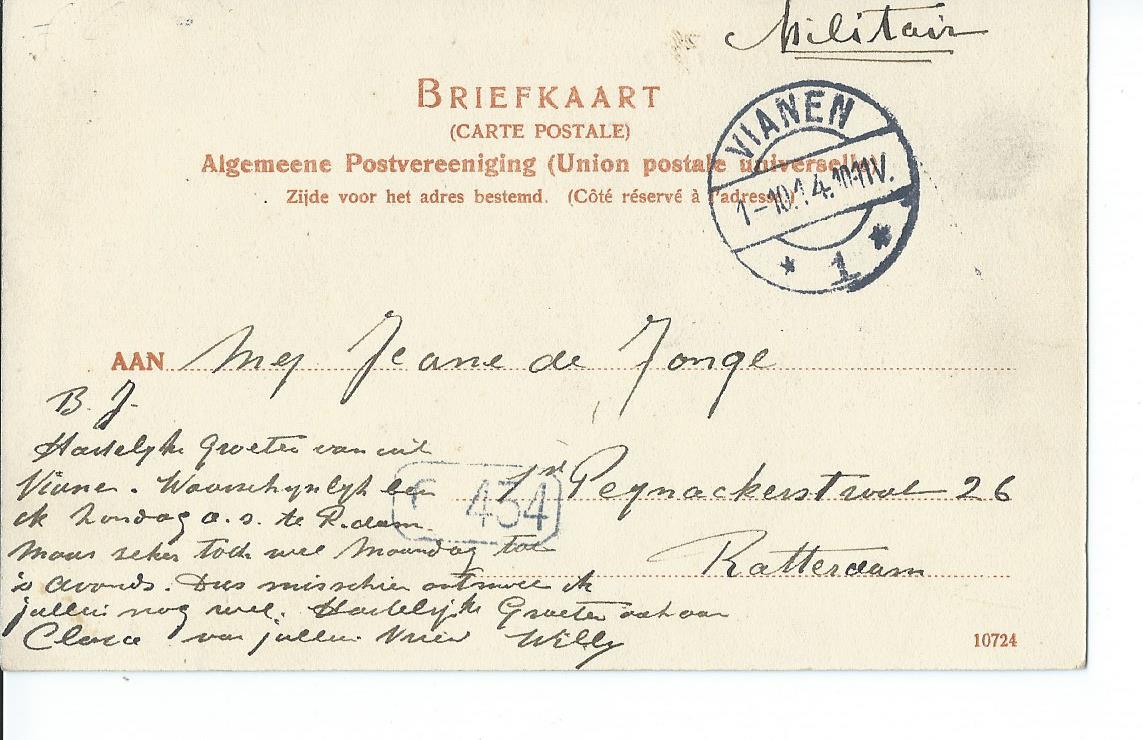 Militair
BRIEFKAART
(CARTE POSTALE)
Algemeene Postvereeniging (Union postale universelle)
Zijde voor het adres bestemd. (Côté réservé à l'adresse)
VIANEN
1-10.14.10-11V.
* 1 *
AAN Mej Jeane de Jonge
B. J.
Hartelijke Groeten van uit
Vianen. Waarschynlyk ben
ik Zondag a.s. te R.dam
maar zeker toch wel Maandag tot
's avonds. Dus misschien ontmoet ik
jullie nog wel. Hartelijke Groeten ook aan
Clara van jullie Vriend Willy
434
Peynackerstraat 26
Rotterdam
10724